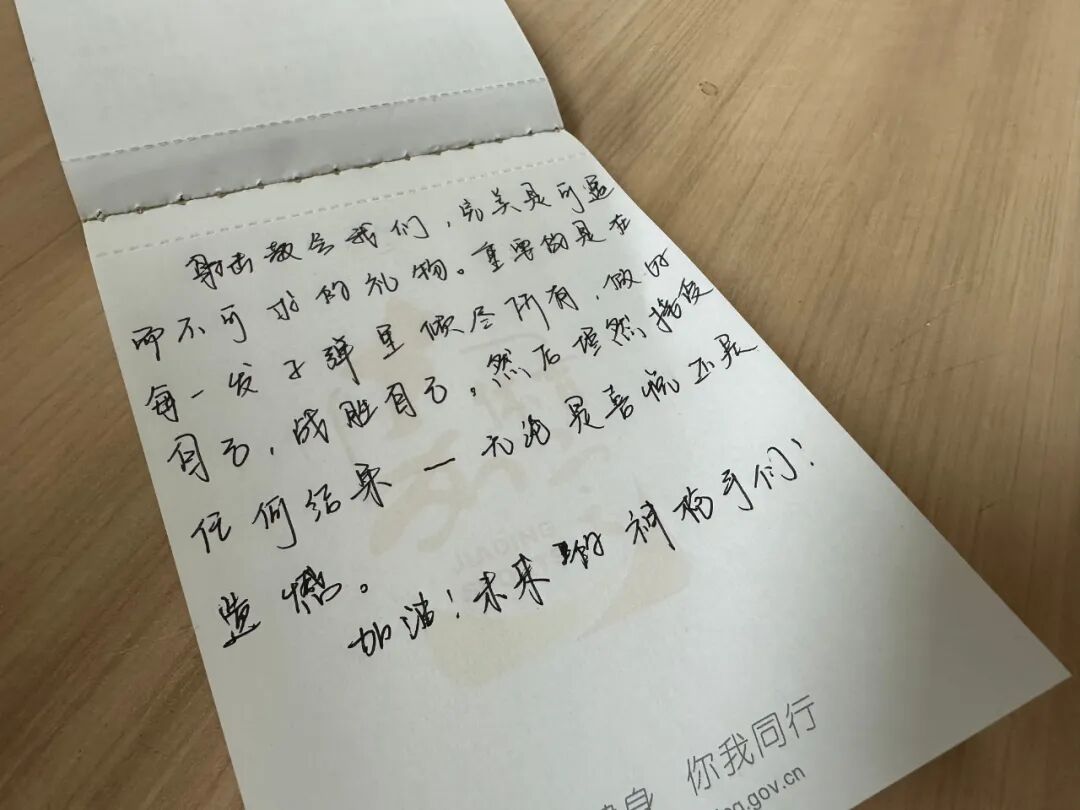 射击教会我们，完美是可遇
而不可求的礼物。重要的是在
每一发子弹里倾尽所有，做好
自己，战胜自己，然后坦然接受
任何结果一无论是喜悦还是
遗憾。
加油！未来的神枪手们！
你我同行
.gov.cn